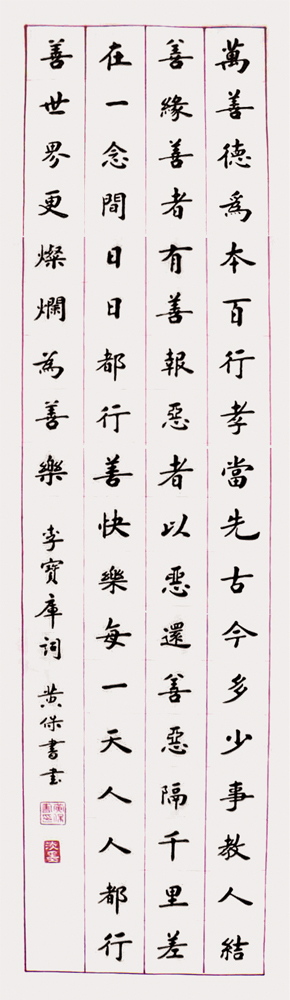 萬善德為本百行孝當先古今多少事教人結
善緣善者有善報惡者以惡還善惡隔千里差
在一念間日日都行善快樂每一天人人都行
善世界更燦爛為善樂
李寶庫詞
黃保書書